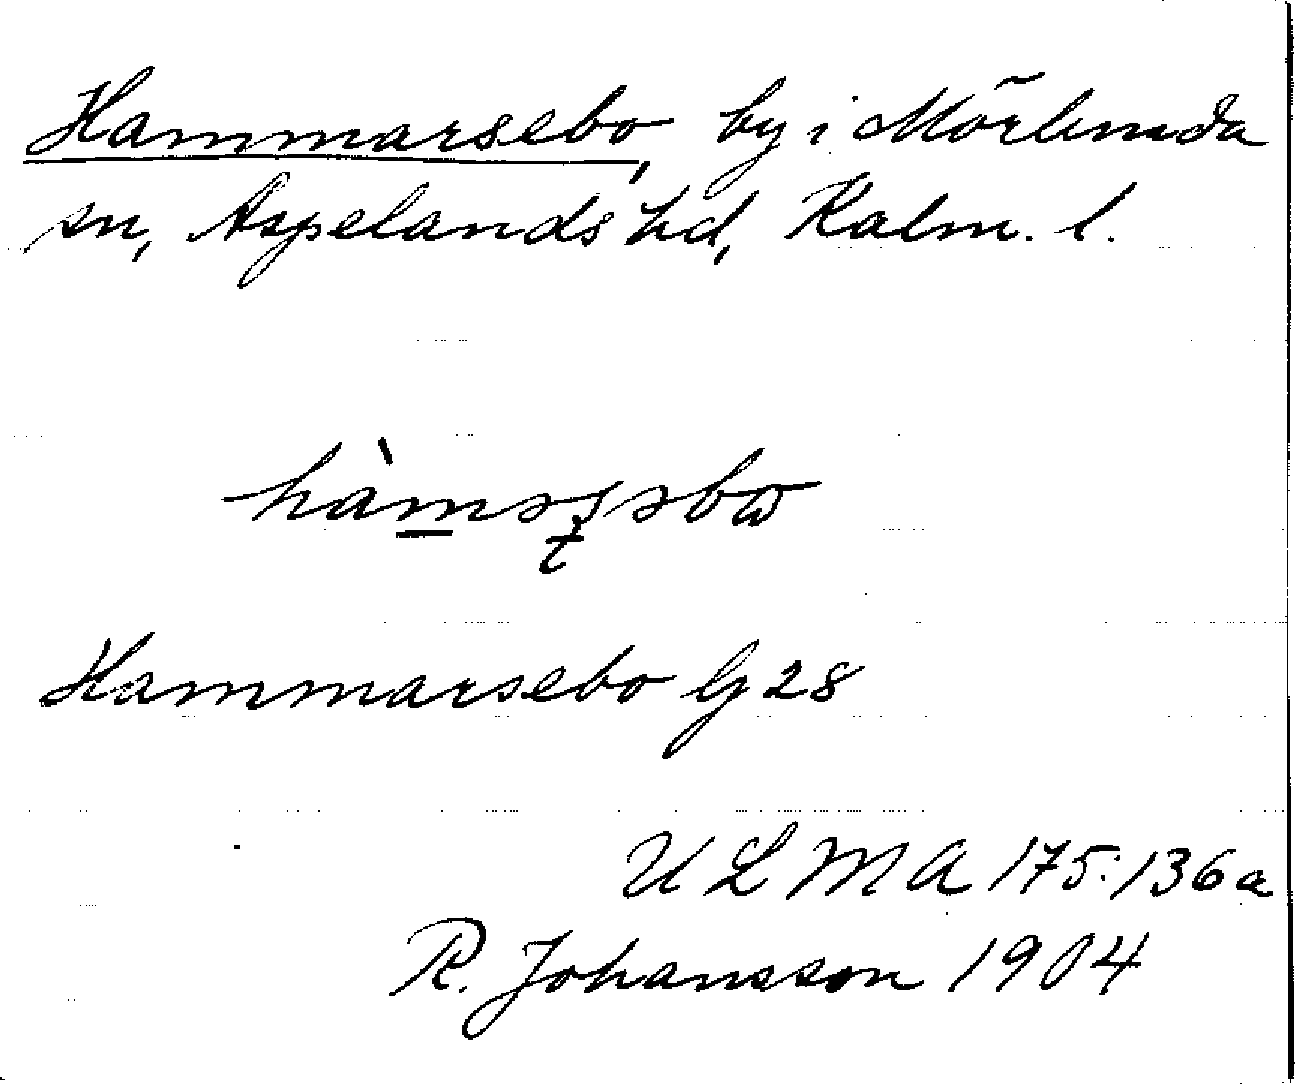 Hammarsebo, by i Mörlunda
sn, Aspelands hd, Kalm. l.
Hammarsebo G 28
ULMA 175:136a
R. Johansson 1904